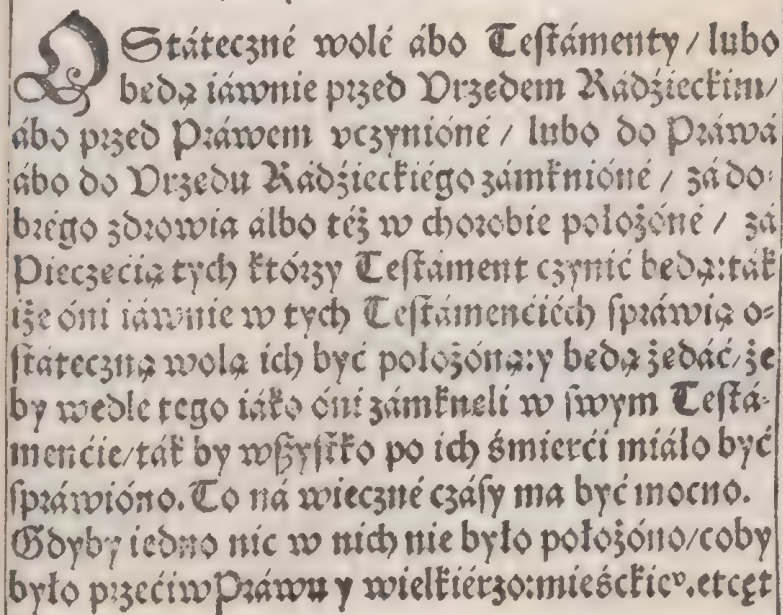 OStáteczné wolé ábo Teſtámenty / lubo
będą iáwnie przed Vrzędem Rádźieckim /
ábo przed Práwem vczynióné / lubo do Práwá
ábo do Vrzędu Rádźieckiégo zámknióné / zá do-
brégo zdrowia álbo też w chorobie położóné / zá
Pieczęćią tych którzy Teſtáment czynić będą: ták
iże óni iáwnie w tych Teſtámenćiéch ſpráwią o-
ſtáteczną wolą ich być położóną: y będą żędáć / że
by wedle tego iáko óni zámknęli w ſwym Teſtá-
menćie / ták by wßyſtko po ich śmierći miáło być
ſpráwióno. To ná wieczné czáſy ma być mocno.
Gdyby iedno nic w nich nie było położóno / coby
było przećiw Práwu y wielkiérzo: mieśckieᵛ. etcęt